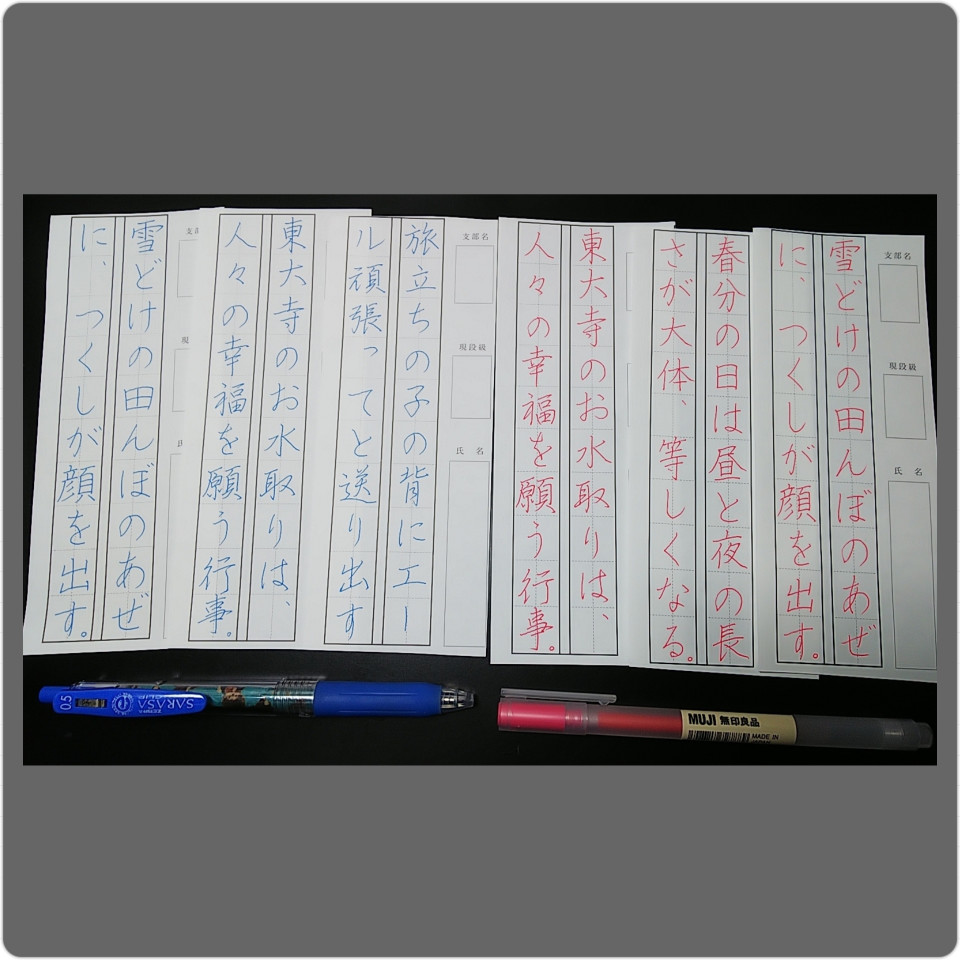 支部名
現段級
氏名
雪どけの田んぼのあぜ
に、つくしが顔を出す。
春分の日は昼と夜の長
さが大体、等しくなる。
東大寺のお水取りは、
人々の幸福を願う行事。
支部名
現段級
氏名
旅立ちの子の背にエー
ル頑張ってと送り出す
東大寺のお水取りは、
人々の幸福を願う行事。
支部
現
氏
雪どけの田んぼのあぜ
に、つくしが顔を出す。
0.5
SARASA
CLIP
MUJI 無印良品
MADE IN
JAPAN